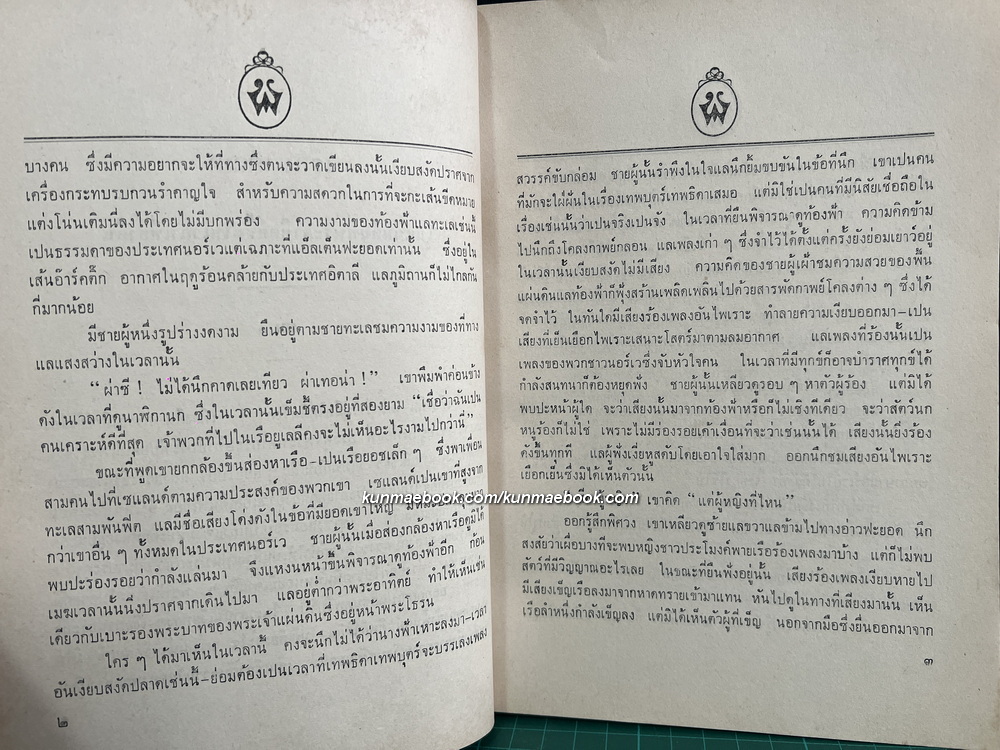 บางคน ซึ่งมีความอยากจะให้ที่ทางซึ่งตนจะวาดเขียนลงนั้นเงียบสงัดปราศจาก
เครื่องกระทบรบกวนรำคาญใจ สำหรับความสดวกในการที่จะกะเส้นขีดหมาย
แต่งโน่นเติมนี่ลงได้โดยไม่มีบกพร่อง ความงามของท้องฟ้าแลทะเลเช่นนี้
เป็นธรรมดาของประเทศนอร์เวแต่เฉภาะที่เอ็ลเต็นฟะยอดเท่านั้น ซึ่งอยู่ใน
เส้นอ๊าร์คติ๊ก อากาศในฤดูร้อนคล้ายกับประเทศอิตาลี แลภูมิถานก็ไม่ไกลกัน
กี่มากน้อย
มีชายผู้หนึ่งรูปร่างงดงาม ยืนอยู่ตามชายทะเลชมความงามของที่ทาง
แลแสงสว่างในเวลานั้น
“ผ่าซี! ไม่ได้นึกคาดเลยเทียว ผ่าเทอน่า!” เขาพึมพำค่อนข้าง
ดังในเวลาที่ดูนาฬิกานก ซึ่งในเวลานั้นเข็มชี้ตรงอยู่ที่สองยาม “เชื่อว่าฉันเป็น
คนเคราะห์ดีที่สุด เจ้าพวกที่ไปในเรือยูเลลีคงจะไม่เห็นอะไรงามไปกว่านี้”
ขณะที่พูดเขายกกล้องขึ้นส่องหาเรือ-เป็นเรือยอชเล็ก ๆ ซึ่งพาเพื่อน
สามคนไปที่เซแลนด์ตามความประสงค์ของพวกเขา เซแลนด์เป็นเขาที่สูงจาก
ทะเลสามพันฟีต แลมีชื่อเสียงโด่งดังในข้อที่มียอดเขาใหญ่
กว่าเขาอื่น ๆ ทั้งหมดในประเทศนอร์เว ชายผู้นั้นเมื่อส่องกล้องหาเรือดูมิได้
พบปะร่องรอยว่ากำลังแล่นมา จึงแหงนหน้าขึ้นพิจารณาดูท้องฟ้าอีก ก้อน
เมฆเวลานั้นนิ่งปราศจากเดินไปมา แลอยู่ต่ำกว่าพระอาทิตย์ ทำให้เห็นเช่น
เดียวกับเบาะรองพระบาทของพระเจ้าแผ่นดินซึ่งอยู่หน้าพระโธรน
ใคร ๆ ได้มาเห็นในเวลานี้ คงจะนึกไม่ได้ว่านางฟ้าเหาะลงมา-เวลา
อันเงียบสงัดปลาดเช่นนี้-ย่อมต้องเป็นเวลาที่เทพธิดาเทพบุตร์จะบรรเลงเพลง
๒
สวรรค์ขับกล่อม ชายผู้นั้นรำพึงในใจแลนึกยิ้มขบขันในข้อที่นึก เขาเป็นคน
ที่มักจะใฝ่ฝันในเรื่องเทพบุตร์เทพธิดาเสมอ แต่มิใช่เป็นคนที่มีนิสัยเชื่อถือใน
เรื่องเช่นนั้นว่าเป็นจริงเป็นจัง ในเวลาที่ยืนพิจารณาดูท้องฟ้า ความคิดข้าม
ไปนึกถึงโคลงกาพย์กลอน แลเพลงเก่า ๆ ซึ่งจำไว้ได้ตั้งแต่ครั้งยังย่อมเยาว์อยู่
ในเวลานั้นเงียบสงัดไม่มีเสียง ความคิดของชายผู้เฝ้าชมความสวยของพื้น
แผ่นดินแลท้องฟ้าก็ฟุ้งสร้านเพลิดเพลินไปด้วยสารพัดกาพย์โคลงต่าง ๆ ซึ่งได้
จดจำไว้ ในทันใดมีเสียงร้องเพลงอันไพเราะ ทำลายความเงียบออกมา-เป็น
เสียงที่เย็นเยือกไพเราะเสนาะโสตร์มาตามลมอากาศ แลเพลงที่ร้องนั้นเป็น
เพลงของพวกชาวนอร์เวซึ่งจับหัวใจคน ในเวลาที่มีทุกข์ก็อาจบำราศทุกข์ได้
กำลังสนทนาก็ต้องหยุดฟัง ชายผู้นั้นเหลียวดูรอบ ๆ หาตัวผู้ร้อง แต่มิได้
พบปะหน้าผู้ใด จะว่าเสียงนั้นมาจากท้องฟ้าหรือก็ไม่เชิงทีเดียว จะว่าสัตว์นก
หนูร้องก็ไม่ใช่ เพราะไม่มีร่องรอยเค้าเงื่อนที่จะว่าเช่นนั้นได้ เสียงนั้นยิ่งร้อง
ดังขึ้นทุกที แลผู้ฟังเงี่ยหูสดับโดยเอาใจใส่มาก ออกนึกชมเสียงอันไพเราะ
เยือกเย็นซึ่งมิได้เห็นตัวนั้น
เขาคิด “แต่ผู้หญิงที่ไหน”
ออกรู้สึกพิศวง เขาเหลียวดูซ้ายแลขวาแลข้ามไปทางอ่าวฟะยอด นึก
สงสัยว่าเผื่อบางทีจะพบหญิงชาวประโมงค์พายเรือร้องเพลงมาบ้าง แต่ก็ไม่พบ
สัตว์ที่มีวิญญาณอะไรเลย ในขณะที่ยืนฟังอยู่นั้น เสียงร้องเพลงเงียบหายไป
มีเสียงเข็ญเรือลงมาจากหาดทรายเข้ามาแทน หันไปดูในทางที่เสียงมานั้น เห็น
เรือลำหนึ่งกำลังเข็ญลง แต่มิได้เห็นตัวผู้ที่เข็ญ นอกจากมือซึ่งยื่นออกมาจาก
๓
kunmaebook.com/kunmaebook.com